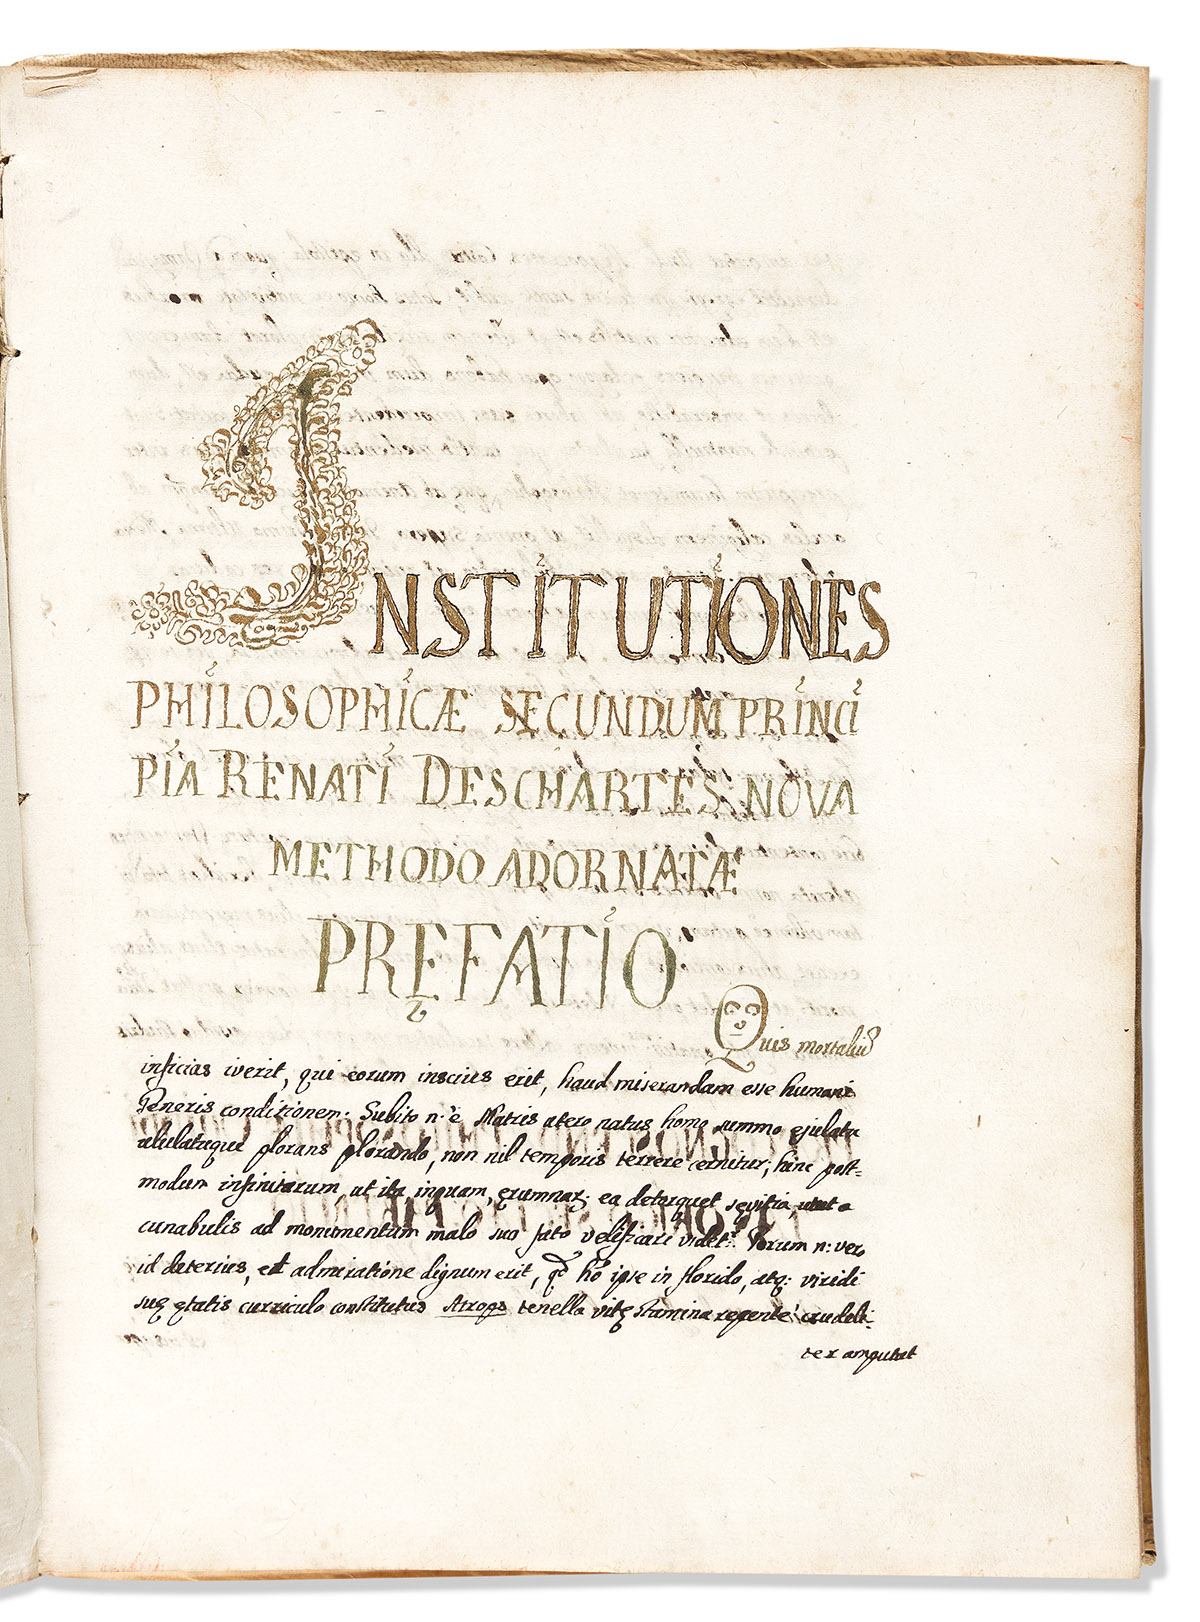 INSTITUTIONES
PHILOSOPHICÆ SECUNDUM PRINCI
PIA RENATI DESCHARTES NOVA
METHODO ADORNATÆ
PRĘFATIO
Quis mortaliũ
inficias iverit, qui eorum inscius erit, haud miserandam esse humani
Generis conditionem. Subito n. è Matris utero natus homo summo ejulatu
ululatuque plorans plorando, non nil temporis terrere cernitur; hinc post-
modum infinitarum, ut ita inquam, ęrumnaꝝ: ea deturquet sęvitia, utut a
cunabulis ad monumentum malo suo fato velificari videt.ʳ Verum n: vero
id deterius, et admiratione dignum erit, qđ hõ ipse in florido, atq: viridi
suę ętatis curriculo constitutus Atropos tenella vitę stamina repentè crudeli-
ter amputat